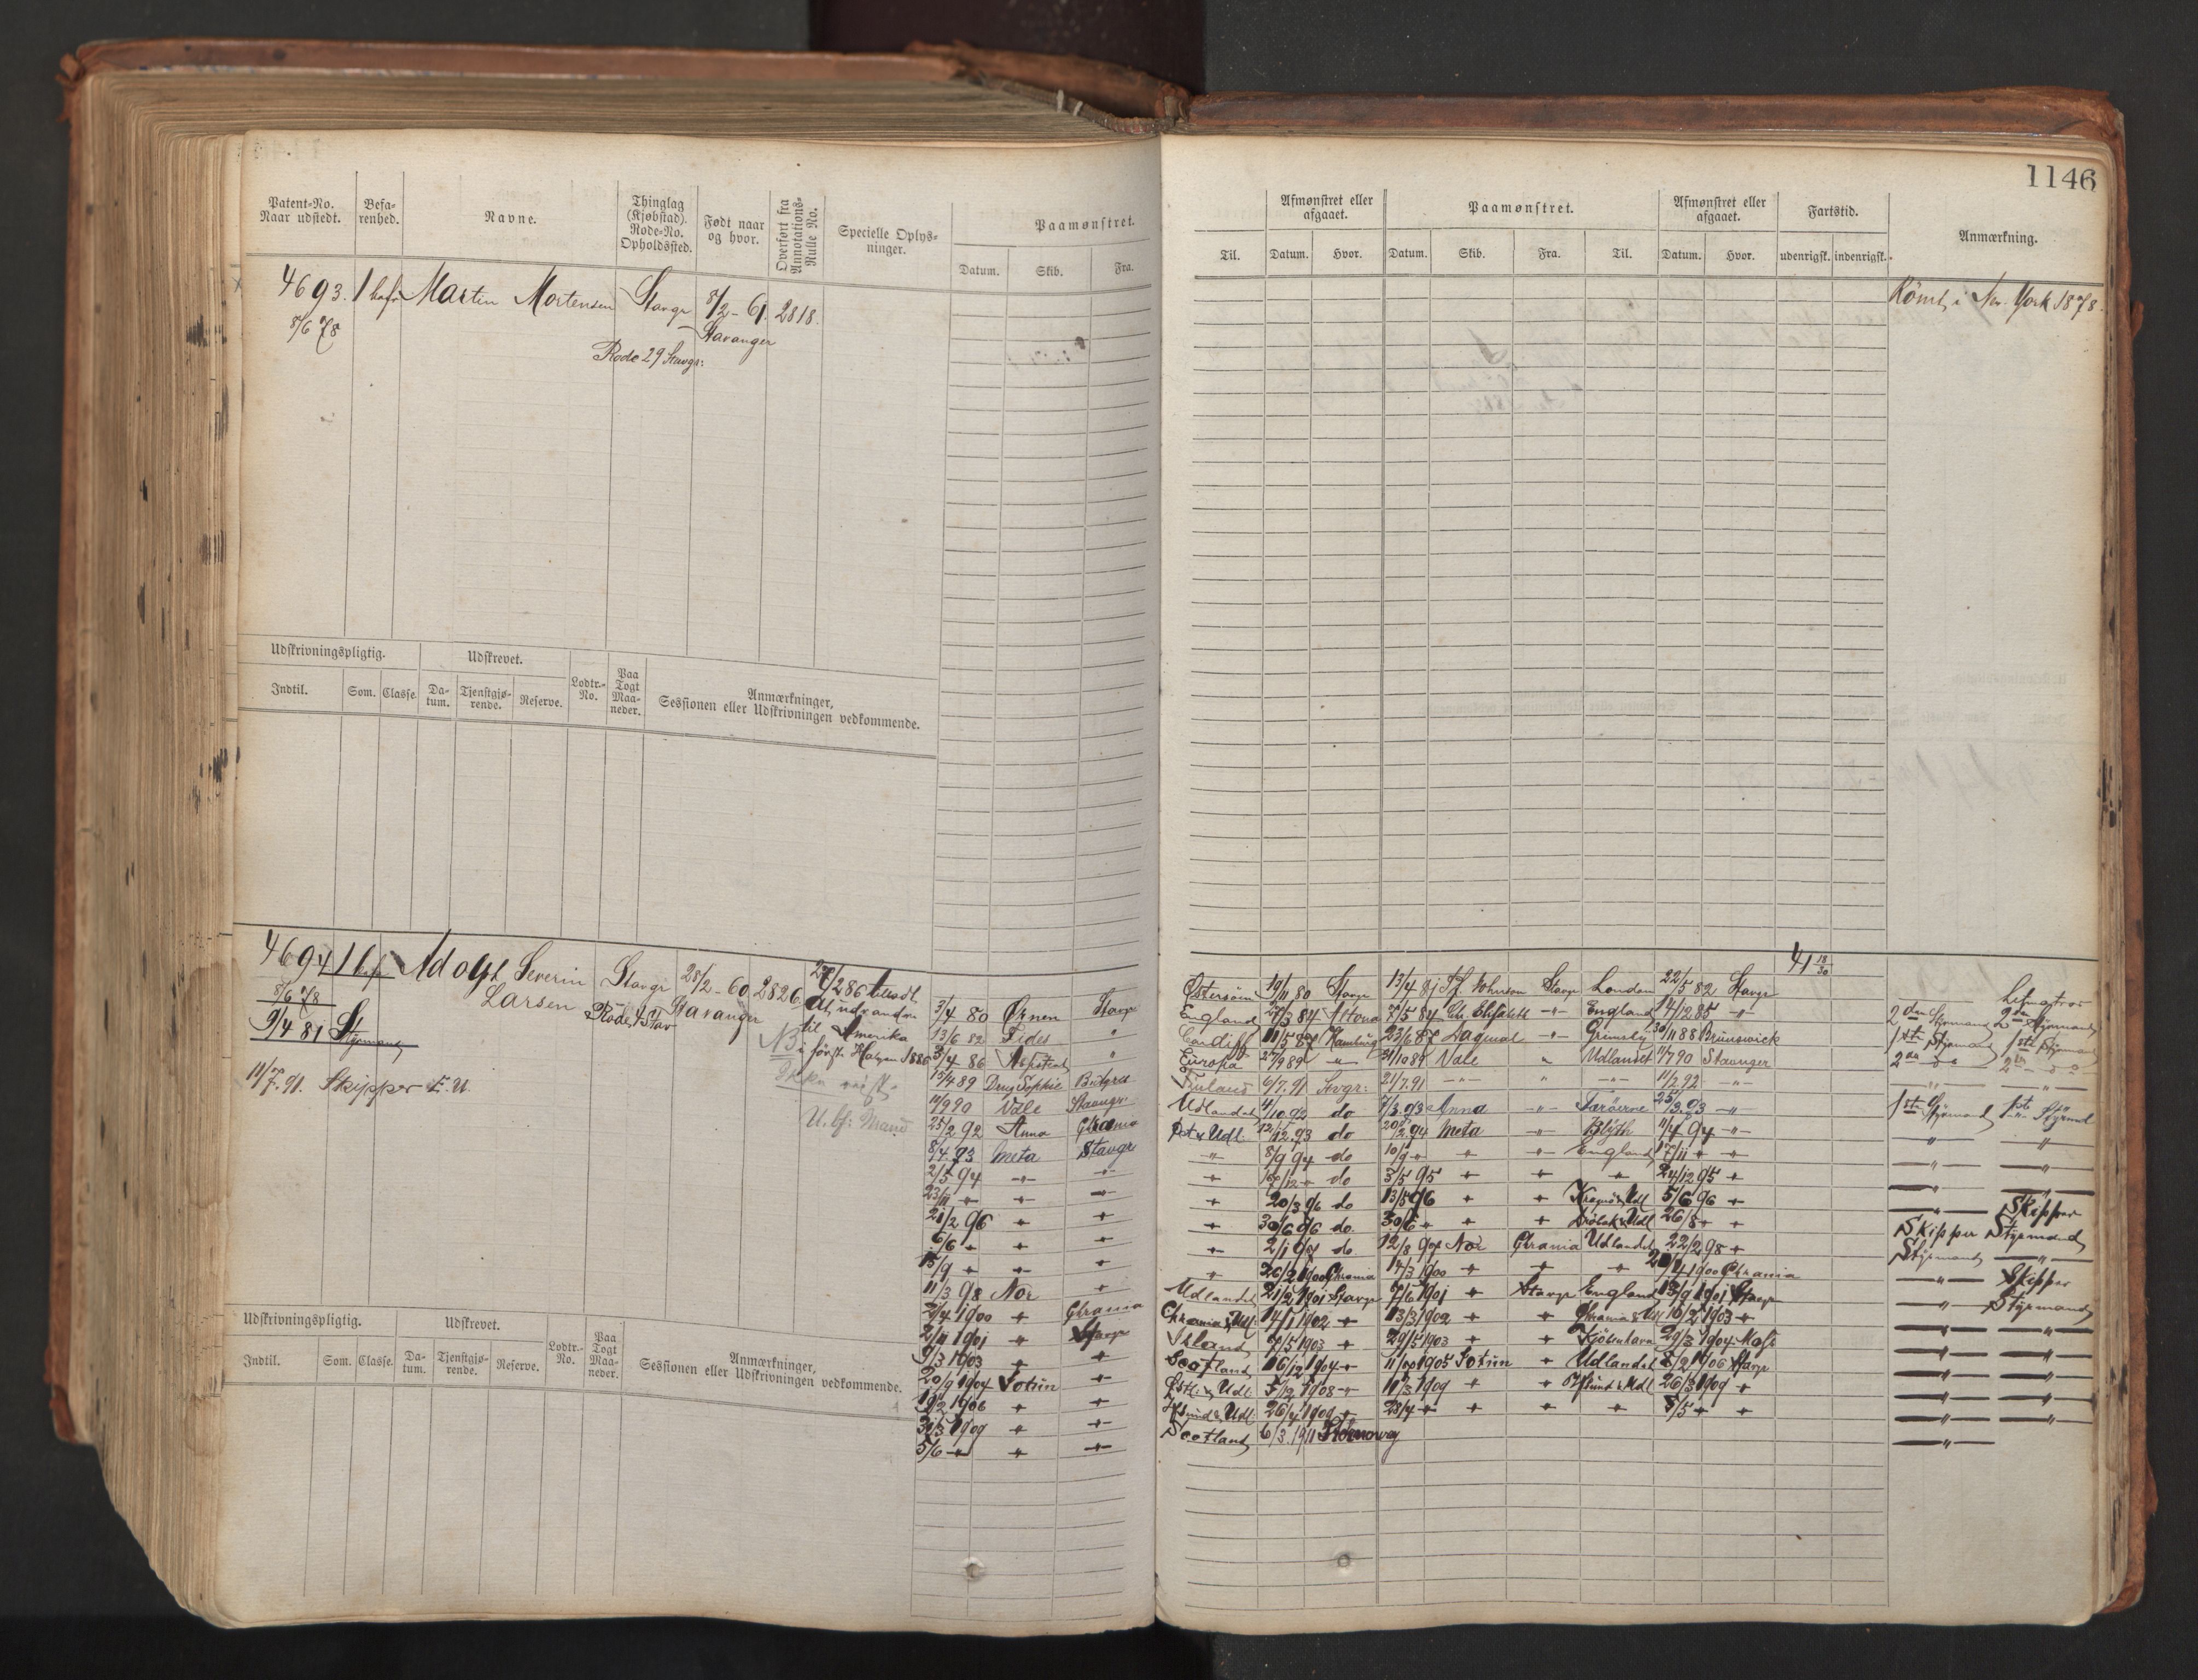 1146
Patent-No. Naar udstedt. Befa-renhed. Navne. Thinglag (Kjøbstad). Rode-No. Opholdssted. Født naar og hvor. Overført fra Annotations-Rulle No. Specielle Oplys-ninger. Paamønstret.
Datum. Skib. Fra.
Afmønstret eller afgaaet. Paamønstret. Afmønstret eller afgaaet. Fartstid. Anmærkning.
Til. Datum. Hvor. Datum. Skib. Fra. Til. Datum. Hvor. udenrigsk. indenrigsk.
4693. 1 Martin Mortensen Stavgr 8/2-61. 2818.
8/6 78 Stavanger
Rode 29 Stavgr:
Römt i New York 1878.
Udskrivningspligtig. Udskrevet. Lodtr.-No. Paa Togt Maa-neder. Anmærkninger, Sessionen eller Udskrivningen vedkommende.
Indtil. Som. Classe. Da-tum. Tjenstgjø-rende. Reserve.
4694 Adolph Severin Larsen Stavgr 28/2-60 2826.
8/6 78 Rode 1 Stav Stavanger
9/4 81 Styrmand
11/7. 91. Skipper E. U.
at udvandre
til Amerika
NB i første Halvaar 1886
41 18/30
3/4 80 Ørnen Stavgr Østersøen 19/11 80 Stavgr 13/4 81 Johnson Stavgr London 22/5 82 Stavgr
13/6 82 Fides " England 27/3 84 Altona 3/5 84 Elisabeth -"- England 14/12 85 -"- 2den Styrmand 2den Styrmand
3/4 86 " Cardiff 11/5 87 Hamburg 23/6 87 Dagmal -"- Grimsby 30/11 88 Brünswick 1ste Styrmand 1ste Styrmand
13/4 89 Sophie Europa 27/9 89 -"- 31/10 89 Vale " Udlandet 11/7 90 Stavanger 2den do 2den do
11/9 90 Vale Stavngr. 6/7. 91 Stvgr: 21/7. 91 -"- " -"- 11/2. 92 -"- -"- -"-
25/2 92 Anna Chrania Udlandet 4/10. 92 do 7/3. 93 Anna -"- Farøerne 25/3. 93 -"- 1ste Styrmand 1st Styrmd
8/4. 93 Meta Stavgr Udl. 12/12. 93 do 20/2. 94 Meta -"- Blyth 11/4 94 -"- -"- -"-
2/5 94 -"- -"- -"- 8/9 94 do 10/9 " " -"- England 17/11 " " -"- -"-
23/11 " " -"- " 17/12 " do 3/5 95 " " " 24/12 95 " -"- -"-
21/2 96 " " " 20/3 96 do 13/5 96 " " Kragerö & Udl 5/6 96 " -"- Skipper
6/6 " " " " 30/6 96 do. 30/6 " " " Dröbak & Udl 26/8 " " Skipper Styrmand
15/9 " " " " 2/1 97 do 12/8 97 Nor Chrania Udlandet 22/2 98 " Styrmand -"-
11/3 98 Nor " " 26/2 1900 Chrania 14/3 1900 " " " 1900 Chrania -"- Skipper
2/4 1900 " Chrania Udlandet 21/2 1901 Stavgr 7/6 1901 " Stavgr England 13/9 1901 Stavgr -"- Styrmand
2/11 1901 " Stavgr Chrania & Udl. 14/1 1902 " 13/3 1902 " " Chrania & Udl 10/2 1903 " -"- -"-
9/3 1903 " " Island 7/5 1903 " 29/5 1903 " " Kjöbenhavn 29/3 1904 Moss -"- -"-
20/9 1904 Jotün " Scotland 16/12 1904 " 1905 Jotün " Udlandet 8/2 1906 Stavgr -"- -"-
19/2 1906 " " & Udl. 5/12 1908 " 11/3 1909 " " & Udl 26/3 1909 " -"- -"-
31/3 1909 " " & Udl. 26/4 1909 " 28/4 " " " " 5/5 " " -"- -"-
5/6 " " " Scotland 6/3. 1911 Stornoway -"-
Udskrivningspligtig. Udskrevet. Lodtr.-No. Paa Togt Maa-neder. Anmærkninger, Sessionen eller Udskrivningen vedkommende.
Indtil. Som. Classe. Da-tum. Tjenstgjø-rende. Reserve.